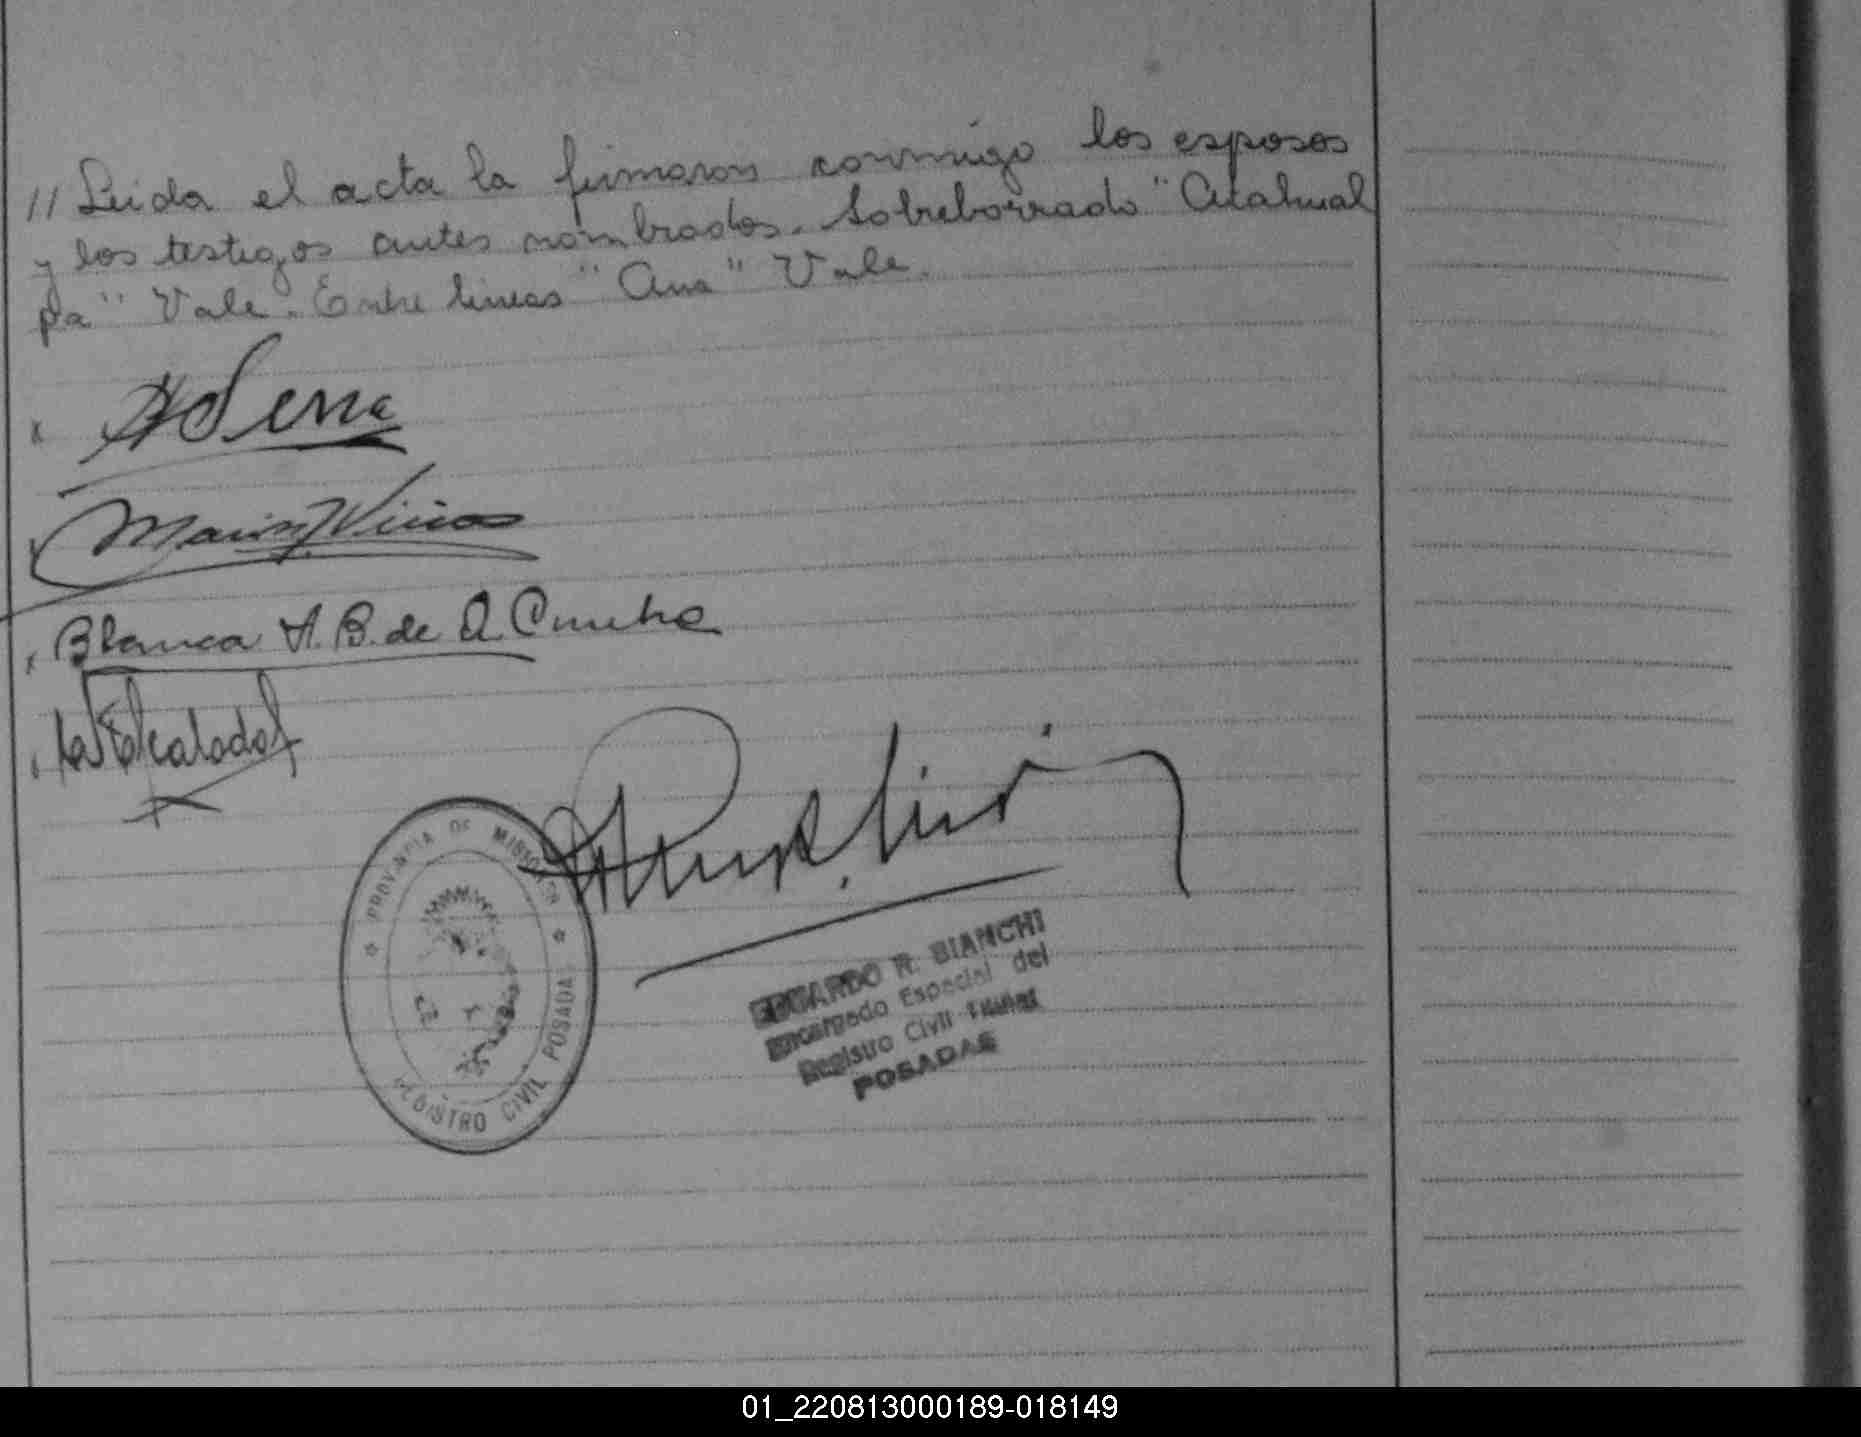 // Leida el acta la firmaron conmigo los esposos
y los testigos antes nombrados. Sobreborrado "Atahual
pa" Vale. Entre lineas "Ana" Vale.
Blanca A. B. de A. Cunha
PROVINCIA DE MISIONES
REGISTRO CIVIL POSADAS
EDUARDO R. BIANCHI
Encargado Especial del
Registro Civil
POSADAS
01_220813000189-018149